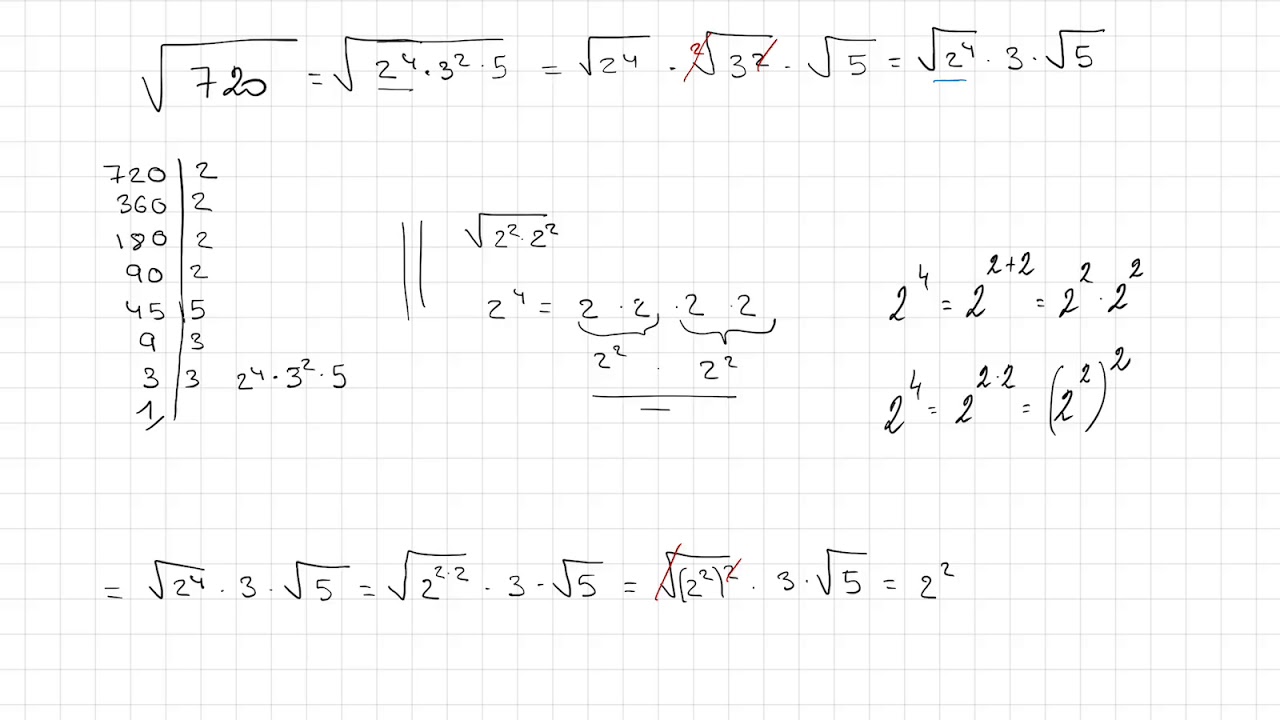 √720 = √(2⁴·3²·5) = √2⁴ · ²√3² · √5 = √2⁴ · 3 · √5
720 | 2
360 | 2
180 | 2
90 | 2
45 | 5
9 | 3
3 | 3 2⁴·3²·5
1
√(2²·2²)
2⁴ = 2 · 2 · 2 · 2
2² · 2²
2⁴ = 2²⁺² = 2² · 2²
2⁴ = 2^(2·2) = (2²)²
= √2⁴ · 3 · √5 = √2^(2·2) · 3 · √5 = √(2²)² · 3 · √5 = 2²